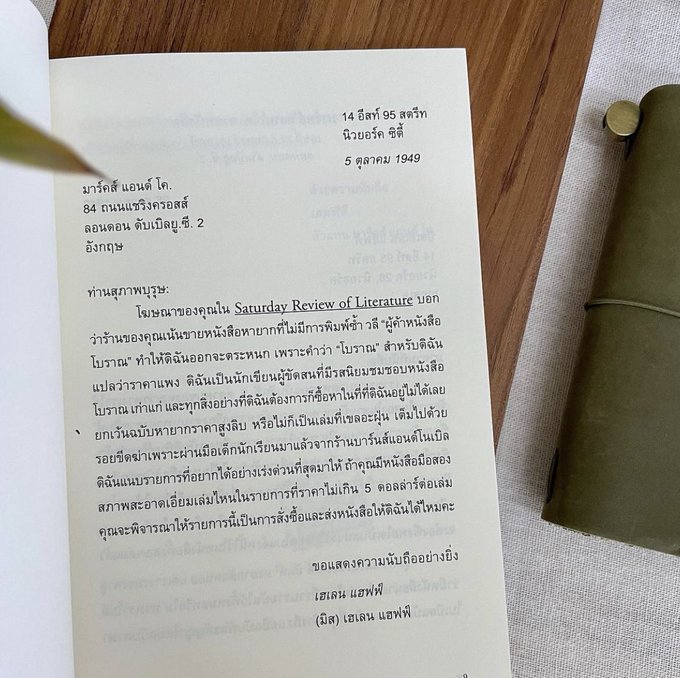 14 อีสท์ 95 สตรีท
นิวยอร์ค ซิตี้
5 ตุลาคม 1949
มาร์คส์ แอนด์ โค.
84 ถนนแชริงครอสส์
ลอนดอน ดับเบิลยู.ซี. 2
อังกฤษ
ท่านสุภาพบุรุษ:
โฆษณาของคุณใน Saturday Review of Literature บอก
ว่าร้านของคุณเน้นขายหนังสือหายากที่ไม่มีการพิมพ์ซ้ำ วลี “ผู้ค้าหนังสือ
โบราณ” ทำให้ดิฉันออกจะตระหนก เพราะคำว่า “โบราณ” สำหรับดิฉัน
แปลว่าราคาแพง ดิฉันเป็นนักเขียนผู้ขัดสนที่มีรสนิยมชมชอบหนังสือ
โบราณ เก่าแก่ และทุกสิ่งอย่างที่ดิฉันต้องการก็ซื้อหาในที่ที่ดิฉันอยู่ไม่ได้เลย
ยกเว้นฉบับหายากราคาสูงลิบ หรือไม่ก็เป็นเล่มที่เขลอะฝุ่น เต็มไปด้วย
รอยขีดฆ่าเพราะผ่านมือเด็กนักเรียนมาแล้วจากร้านบาร์นส์แอนด์โนเบิล
ดิฉันแนบรายการที่อยากได้อย่างเร่งด่วนที่สุดมาให้ ถ้าคุณมีหนังสือมือสอง
สภาพสะอาดเอี่ยมเล่มไหนในรายการที่ราคาไม่เกิน 5 ดอลล่าร์ต่อเล่ม
คุณจะพิจารณาให้รายการนี้เป็นการสั่งซื้อและส่งหนังสือให้ดิฉันได้ไหมคะ
ขอแสดงความนับถืออย่างยิ่ง
เฮเลน แฮฟฟ์
(มิส) เฮเลน แฮฟฟ์